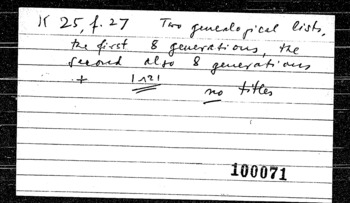 K 25, f. 27 Two genealogical lists,
the first 8 generations, the
second also 8 generations
+
no titles
100071